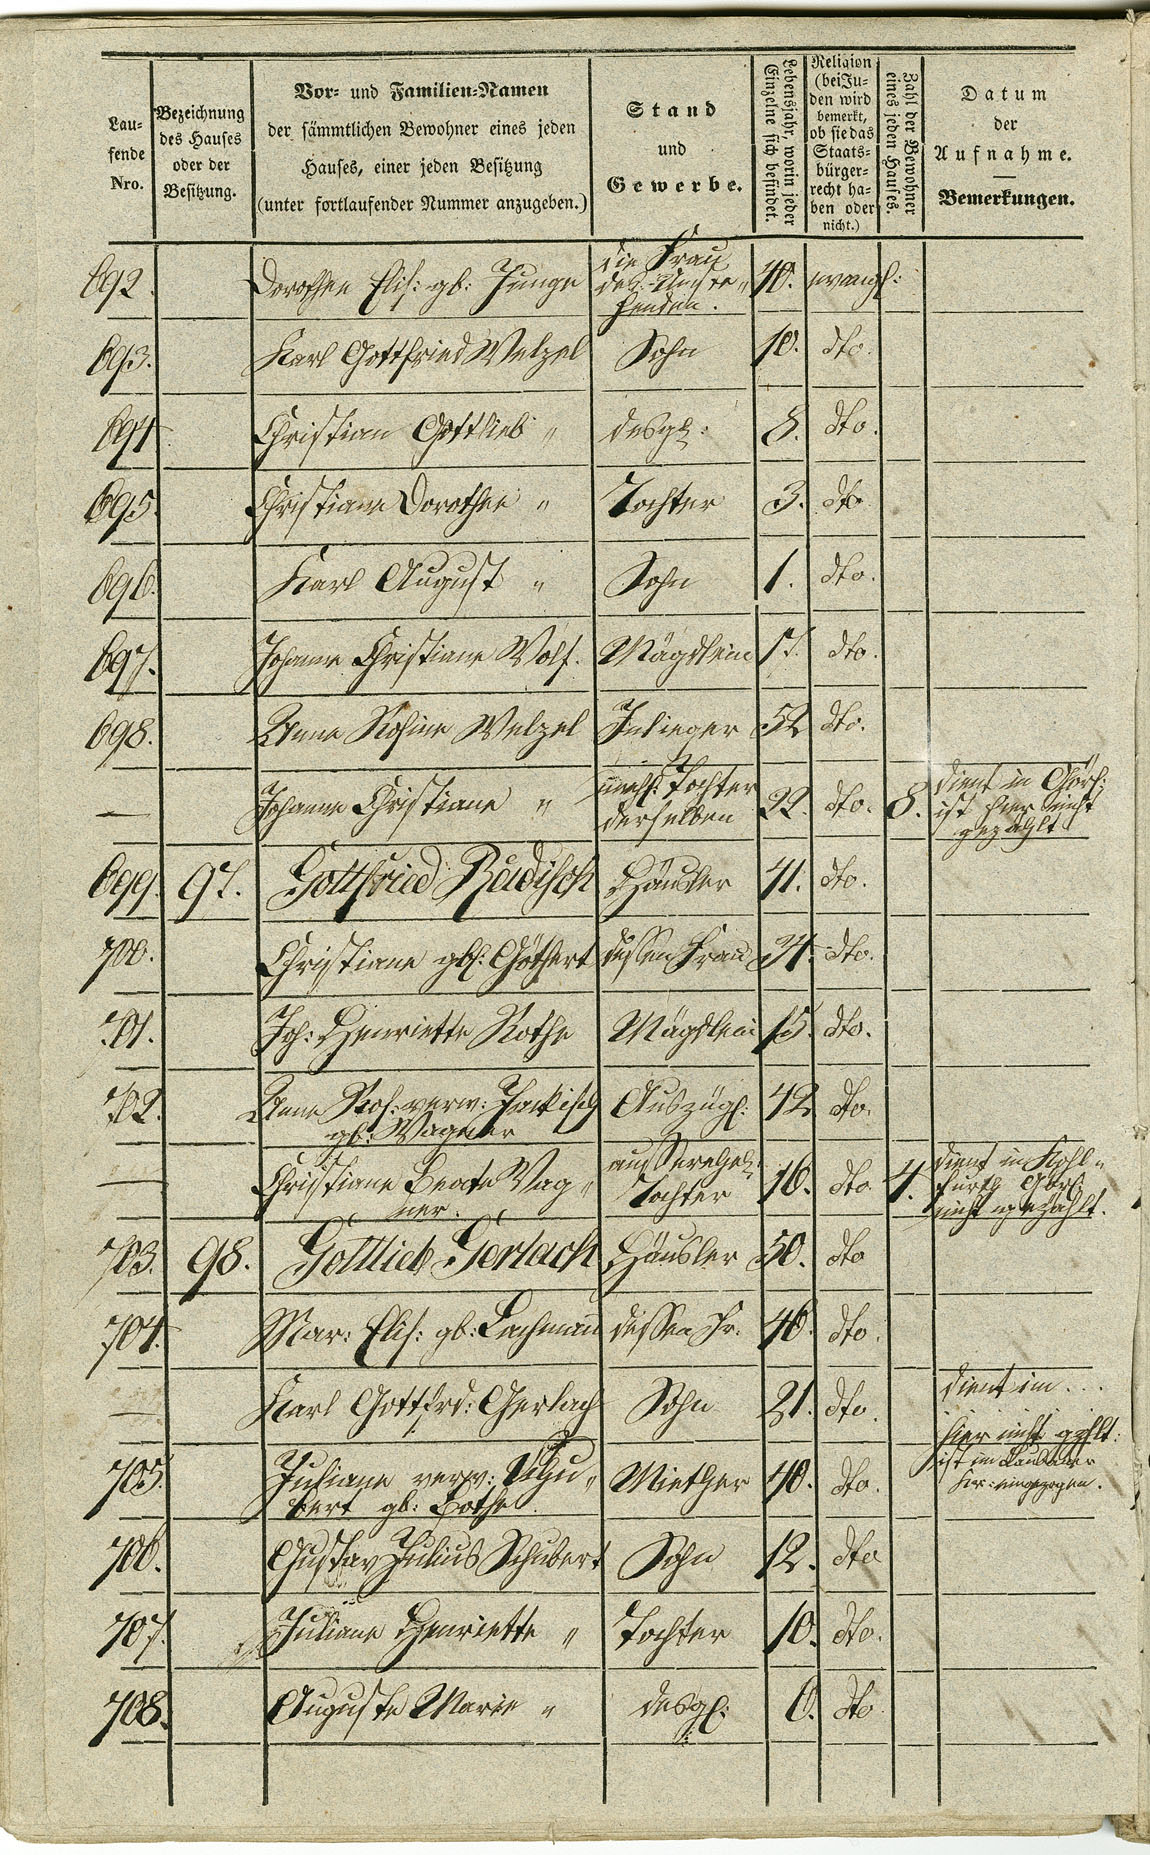 Lau-
fende
Nro.
Bezeichnung
des Hauses
oder der
Besitzung.
Vor- und Familien-Namen
der sämmtlichen Bewohner eines jeden
Hauses, einer jeden Besitzung
(unter fortlaufender Nummer anzugeben.)
Stand
und
Gewerbe.
Lebensjahr, worin jeder
Einzelne sich befindet.
Religion
(bei Ju-
den wird
bemerkt,
ob sie das
Staats-
bürger-
recht ha-
ben oder
nicht.)
Zahl der Bewohner
eines jeden Hauses.
Datum
der
Aufnahme.
Bemerkungen.
692. Dorothee Elis: gb: Junge die Frau 40. evangl:
des
693. Karl Gottfried Welzel Sohn 10. dto.
694 Christian Gottlieb " desgl: 8. dto.
695. Christiane Dorothee " Tochter 3. dto
696. Karl August " Sohn 1. dto.
697. Johanne Christiane Wolf. Mägdlein 17. dto.
698. Anne Rosine Welzel Inlieger 52 dto.
— Johanne Christiane " unehl: Tochter
derselben 22. dto. 8. dient in Görl:
ist hier nicht
gezählt
699. 97. Gottfried Rädisch Häusler 41. dto.
700. Christiane gb: Göthert dessen Frau 34. dto.
701. Joh: Henriette Rothe Mägdlein 15. dto.
702. Anne Ros: verw: Jackisch Auszügl: 42 dto.
gb: Wagner
— Christiane Beate Wag=
ner. ausserehel:
Tochter 16. dto 4. dient in Kohl=
furth Görl:
nicht gezählt.
703. 98. Gottlieb Gerlach Häusler 50. dto
704. Mar: Elis: gb: Lachmann dessen Fr. 46. dto.
— Karl Gottfrd: Gerlach Sohn 21. dto. dient im ...
hier nicht gzhlt:
705. Juliane verw: Schu=
bert gb: Bothe. Miether 40. dto. ist im
eingezogen.
706. Gustav Julius Schubert Sohn 12. dto
707. Juliane Henriette " Tochter 10. dto.
708. Auguste Marie " desgl: 6. dto